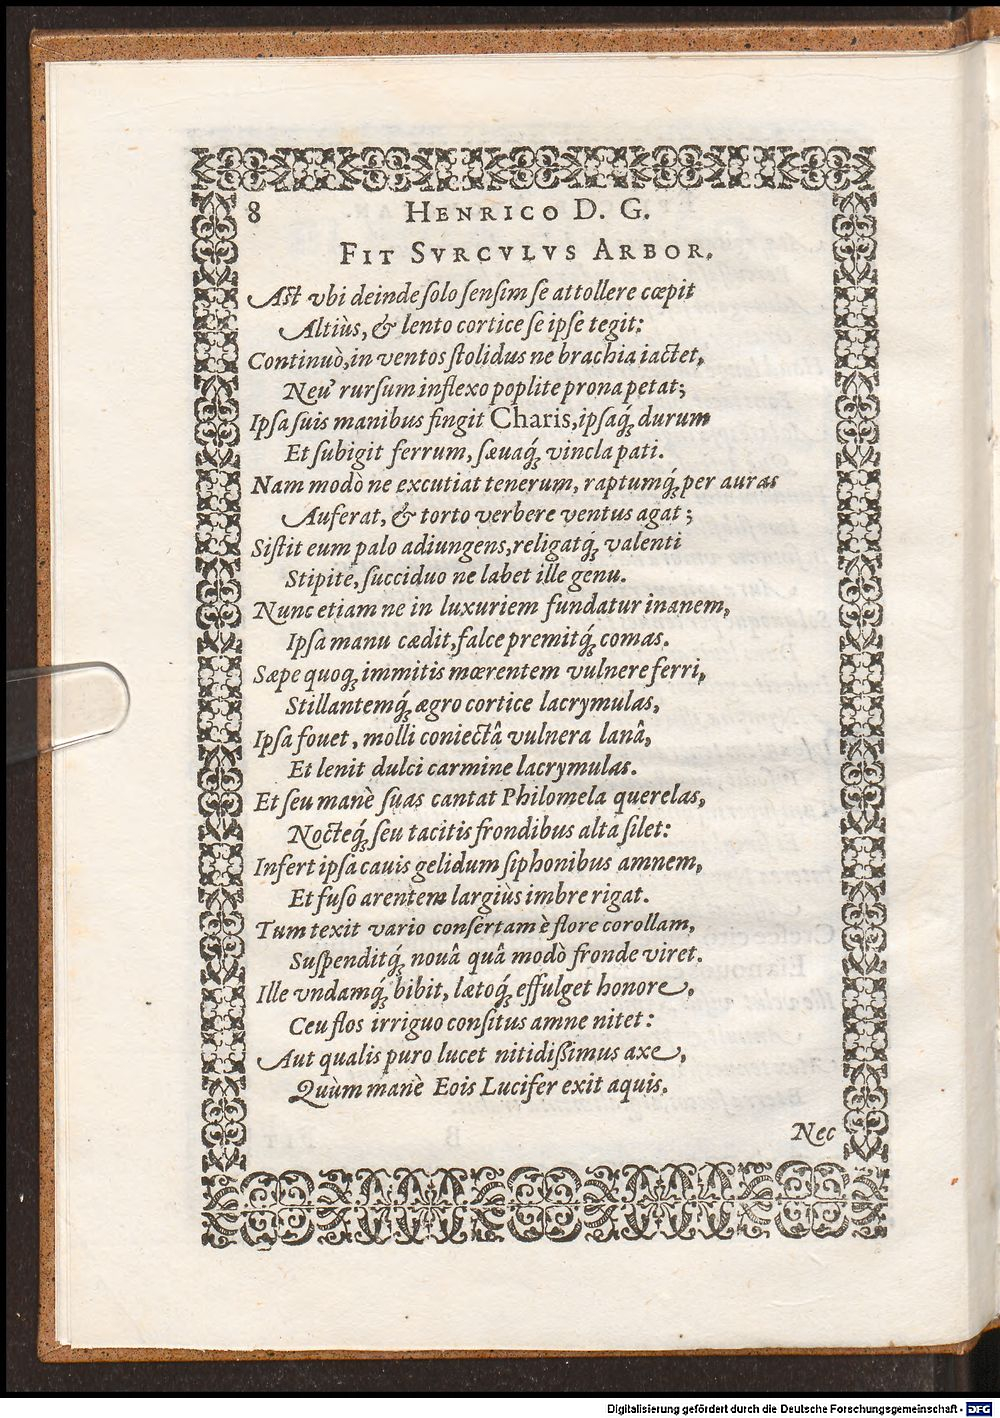 8 HENRICO D. G.
FIT SVRCVLVS ARBOR.
Ast vbi deinde solo sensim se attollere cœpit
Altiùs, & lento cortice se ipse tegit:
Continuò, in ventos stolidus ne brachia iactet,
Neu' rursum inflexo poplite prona petat;
Ipsa suis manibus fingit Charis, ipsaq́; durum
Et subigit ferrum, sæuaq́; vincla pati.
Nam modò ne excutiat tenerum, raptumq́; per auras
Auferat, & torto verbere ventus agat;
Sistit eum palo adiungens, religatq́; valenti
Stipite, succiduo ne labet ille genu.
Nunc etiam ne in luxuriem fundatur inanem,
Ipsa manu cædit, falce premitq́; comas.
Sæpe quoq; immitis mœrentem vulnere ferri,
Stillantemq́; ægro cortice lacrymulas,
Ipsa fouet, molli coniectâ vulnera lanâ,
Et lenit dulci carmine lacrymulas.
Et seu manè suas cantat Philomela querelas,
Nocteq́; seu tacitis frondibus alta silet:
Infert ipsa cauis gelidum siphonibus amnem,
Et fuso arentem largiùs imbre rigat.
Tum texit vario consertam è flore corollam,
Suspenditq́; nouâ quâ modò fronde viret.
Ille vndamq́; bibit, lætoq́; effulget honore,
Ceu flos irriguo consitus amne nitet:
Aut qualis puro lucet nitidißimus axe,
Quùm manè Eois Lucifer exit aquis.
Nec
Digitalisierung gefördert durch die Deutsche Forschungsgemeinschaft - DFG